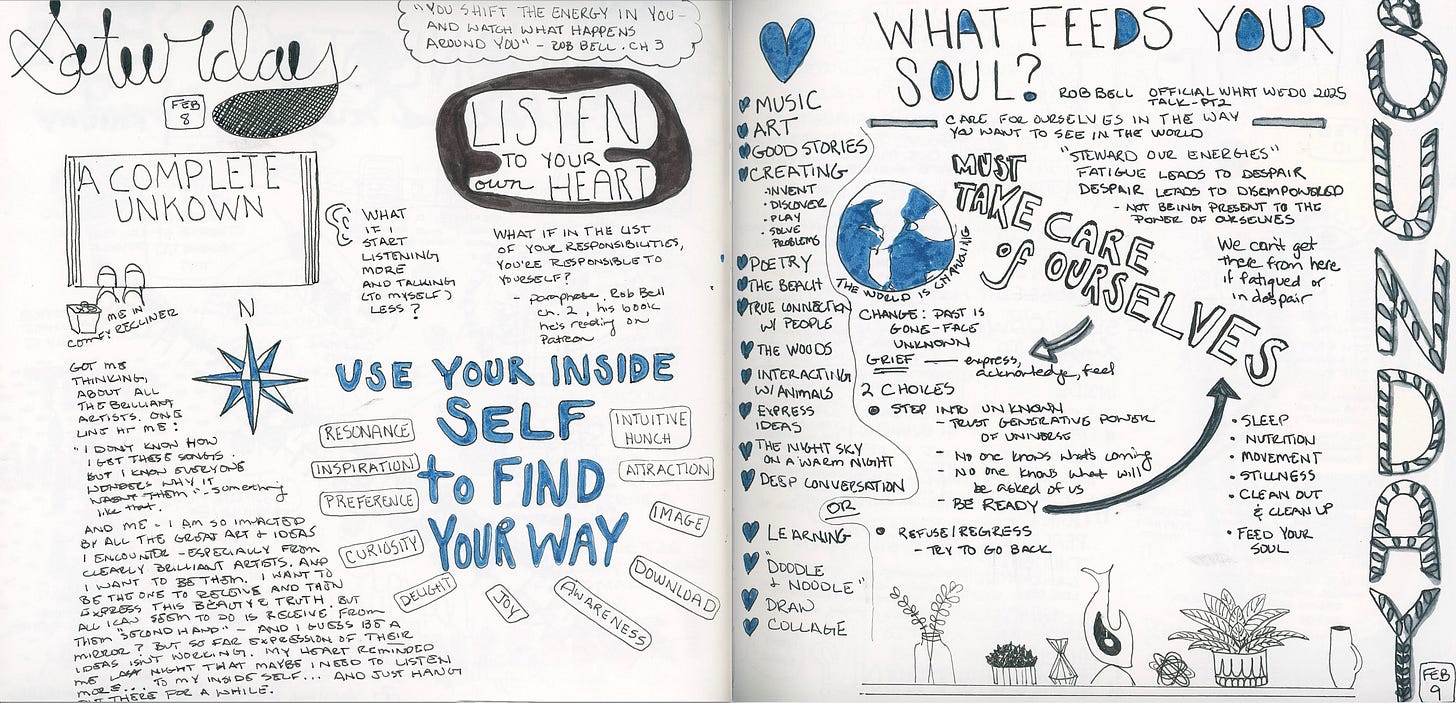 Saturday
FEB
8
"YOU SHIFT THE ENERGY IN YOU -
AND WATCH WHAT HAPPENS
AROUND YOU" - ROB BELL. CH 3
A COMPLETE
UNKOWN
ME IN
COMFY RECLINER
WHAT
IF I
START
LISTENING
MORE
AND TALKING
(TO MYSELF)
LESS?
LISTEN
TO YOUR
own HEART
WHAT IF IN THE LIST
OF YOUR RESPONSIBILITIES,
YOU'RE RESPONSIBLE TO
YOURSELF?
- paraphrase, Rob Bell
ch. 2, his book
he's reading on
Patreon
N
GOT ME
THINKING,
ABOUT ALL
THE BRILLIANT
ARTISTS. ONE
LINE HIT ME:
"I DON'T KNOW HOW
I GET THESE SONGS.
BUT I KNOW EVERYONE
WONDERS WHY IT
WASN'T THEM" - something
like that.
AND ME - I AM SO IMPACTED
BY ALL THE GREAT ART & IDEAS
I ENCOUNTER - ESPECIALLY FROM
CLEARLY BRILLIANT ARTISTS. AND
I WANT TO BE THEM. I WANT TO
BE THE ONE TO RECEIVE AND THEN
EXPRESS THIS BEAUTY & TRUTH. BUT
ALL I CAN SEEM TO DO IS RECEIVE FROM
THEM "SECOND HAND" - AND I GUESS BE A
MIRROR? BUT SO FAR EXPRESSION OF THEIR
IDEAS ISN'T WORKING. MY HEART REMINDED
ME LAST NIGHT THAT MAYBE I NEED TO LISTEN
MORE... TO MY INSIDE SELF... AND JUST HANG
OUT THERE FOR A WHILE.
USE YOUR INSIDE
SELF
to FIND
YOUR WAY
RESONANCE
INSPIRATION
PREFERENCE
CURIOSITY
DELIGHT
JOY
AWARENESS
DOWNLOAD
IMAGE
ATTRACTION
INTUITIVE
HUNCH
WHAT FEEDS YOUR
SOUL?
MUSIC
ART
GOOD STORIES
CREATING
· INVENT
· DISCOVER
· PLAY
· SOLVE
PROBLEMS
POETRY
THE BEACH
TRUE CONNECTION
W/ PEOPLE
THE WOODS
INTERACTING
W/ ANIMALS
EXPRESS
IDEAS
THE NIGHT SKY
ON A WARM NIGHT
DEEP CONVERSATION
LEARNING
"DOODLE
& NOODLE"
DRAW
COLLAGE
ROB BELL OFFICIAL WHAT WE DO 2025
TALK - PT2
CARE FOR OURSELVES IN THE WAY
YOU WANT TO SEE IN THE WORLD
"STEWARD OUR ENERGIES"
FATIGUE LEADS TO DESPAIR
DESPAIR LEADS TO DISEMPOWERED
- NOT BEING PRESENT TO THE
POWER OF OURSELVES
MUST
TAKE CARE
of OURSELVES
We can't get
there from here
if fatigued or
in despair
THE WORLD IS CHANGING
CHANGE: PAST IS
GONE - FACE
UNKNOWN
GRIEF — express,
acknowledge, feel
2 CHOICES
STEP INTO UNKNOWN
- TRUST GENERATIVE POWER
OF UNIVERSE
- No one knows what's coming
- No one knows what will
be asked of us
- BE READY
OR
REFUSE/REGRESS
- TRY TO GO BACK
· SLEEP
· NUTRITION
· MOVEMENT
· STILLNESS
· CLEAN OUT
& CLEAN UP
· FEED YOUR
SOUL
SUNDAY
FEB
9